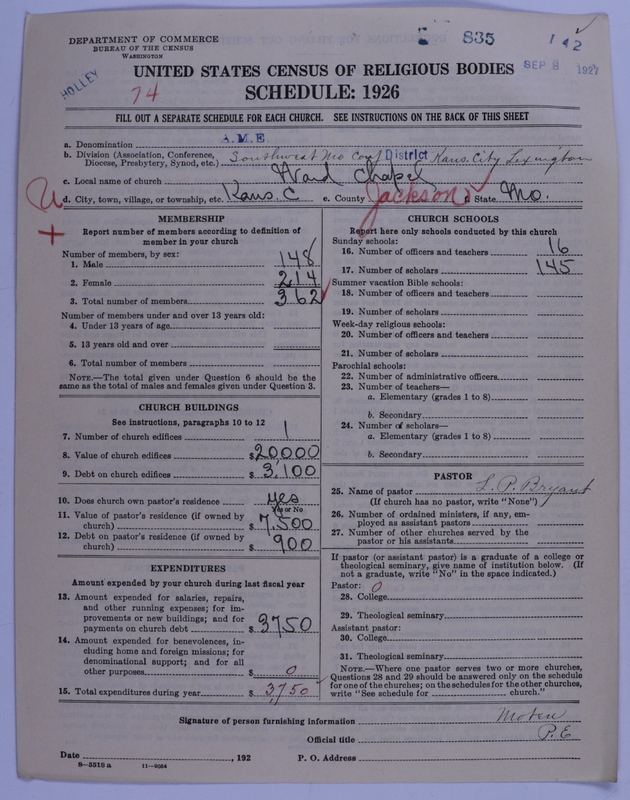 DEPARTMENT OF COMMERCE
BUREAU OF THE CENSUS
WASHINGTON
835
142
SEP 8 1927
HOLLEY
74
UNITED STATES CENSUS OF RELIGIOUS BODIES
SCHEDULE: 1926
FILL OUT A SEPARATE SCHEDULE FOR EACH CHURCH. SEE INSTRUCTIONS ON THE BACK OF THIS SHEET
a. Denomination A.M.E.
b. Division (Association, Conference, Diocese, Presbytery, Synod, etc.) Southwest Mo Conf District Kans. City Lexington
c. Local name of church Ward Chapel
d. City, town, village, or township, etc. Kans. C e. County Jackson f. State Mo.
MEMBERSHIP
Report number of members according to definition of
member in your church
Number of members, by sex:
1. Male 148
2. Female 214
3. Total number of members 362
Number of members under and over 13 years old:
4. Under 13 years of age
5. 13 years old and over
6. Total number of members
NOTE.—The total given under Question 6 should be the
same as the total of males and females given under Question 3.
CHURCH BUILDINGS
See instructions, paragraphs 10 to 12
7. Number of church edifices 1
8. Value of church edifices $20000
9. Debt on church edifices $ 3,100
10. Does church own pastor's residence yes
Yes or No
11. Value of pastor's residence (if owned by
church) $ 7,500
12. Debt on pastor's residence (if owned by
church) $ 900
EXPENDITURES
Amount expended by your church during last fiscal year
13. Amount expended for salaries, repairs,
and other running expenses; for im-
provements or new buildings; and for
payments on church debt $ 3750
14. Amount expended for benevolences, in-
cluding home and foreign missions; for
denominational support; and for all
other purposes $ 0
15. Total expenditures during year $ 3,750
CHURCH SCHOOLS
Report here only schools conducted by this church
Sunday schools:
16. Number of officers and teachers 16
17. Number of scholars 145
Summer vacation Bible schools:
18. Number of officers and teachers
19. Number of scholars
Week-day religious schools:
20. Number of officers and teachers
21. Number of scholars
Parochial schools:
22. Number of administrative officers
23. Number of teachers—
a. Elementary (grades 1 to 8)
b. Secondary
24. Number of scholars—
a. Elementary (grades 1 to 8)
b. Secondary
PASTOR
25. Name of pastor L. P. Bryant
(If church has no pastor, write "None")
26. Number of ordained ministers, if any, em-
ployed as assistant pastors
27. Number of other churches served by the
pastor or his assistants
If pastor (or assistant pastor) is a graduate of a college or
theological seminary, give name of institution below. (If
not a graduate, write "No" in the space indicated.)
Pastor: 0
28. College
29. Theological seminary
Assistant pastor:
30. College
31. Theological seminary
NOTE.—Where one pastor serves two or more churches,
Questions 28 and 29 should be answered only on the schedule
for one of the churches; on the schedules for the other churches,
write "See schedule for church."
Signature of person furnishing information Moten
Official title P.E
Date , 192 P. O. Address
8—5516 a 11—9054